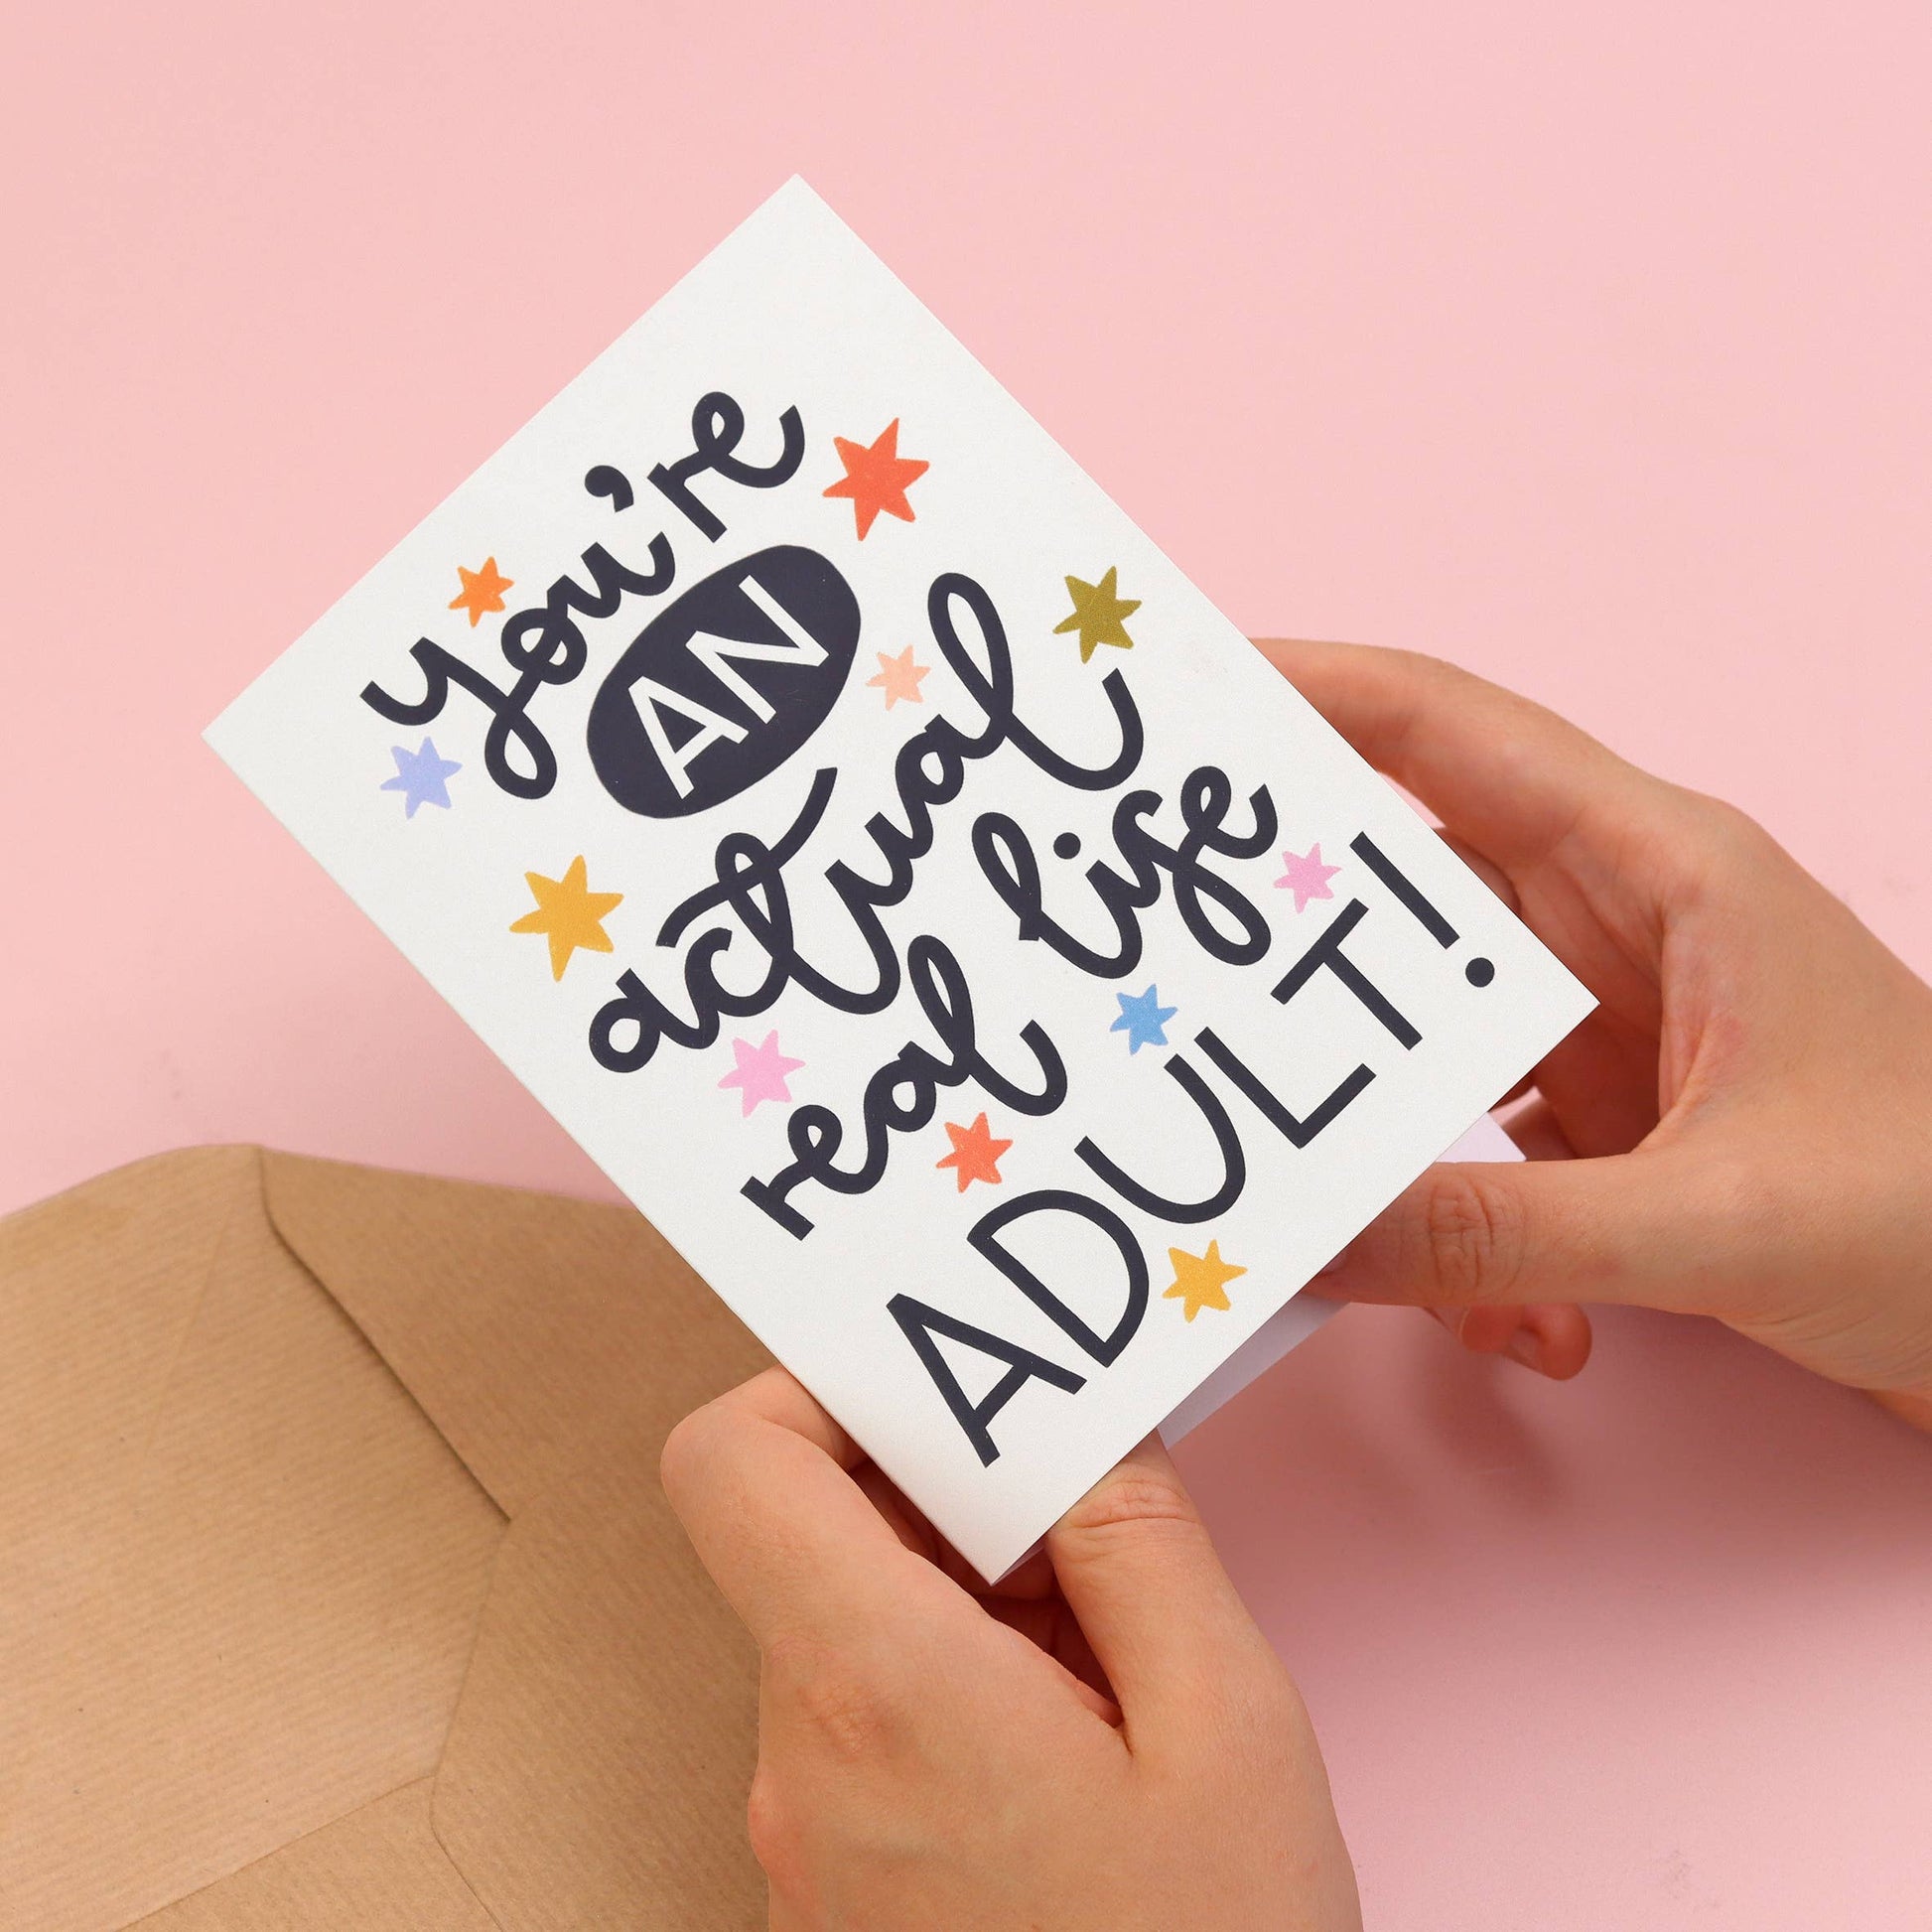 you're
AN
actual
real life
ADULT!